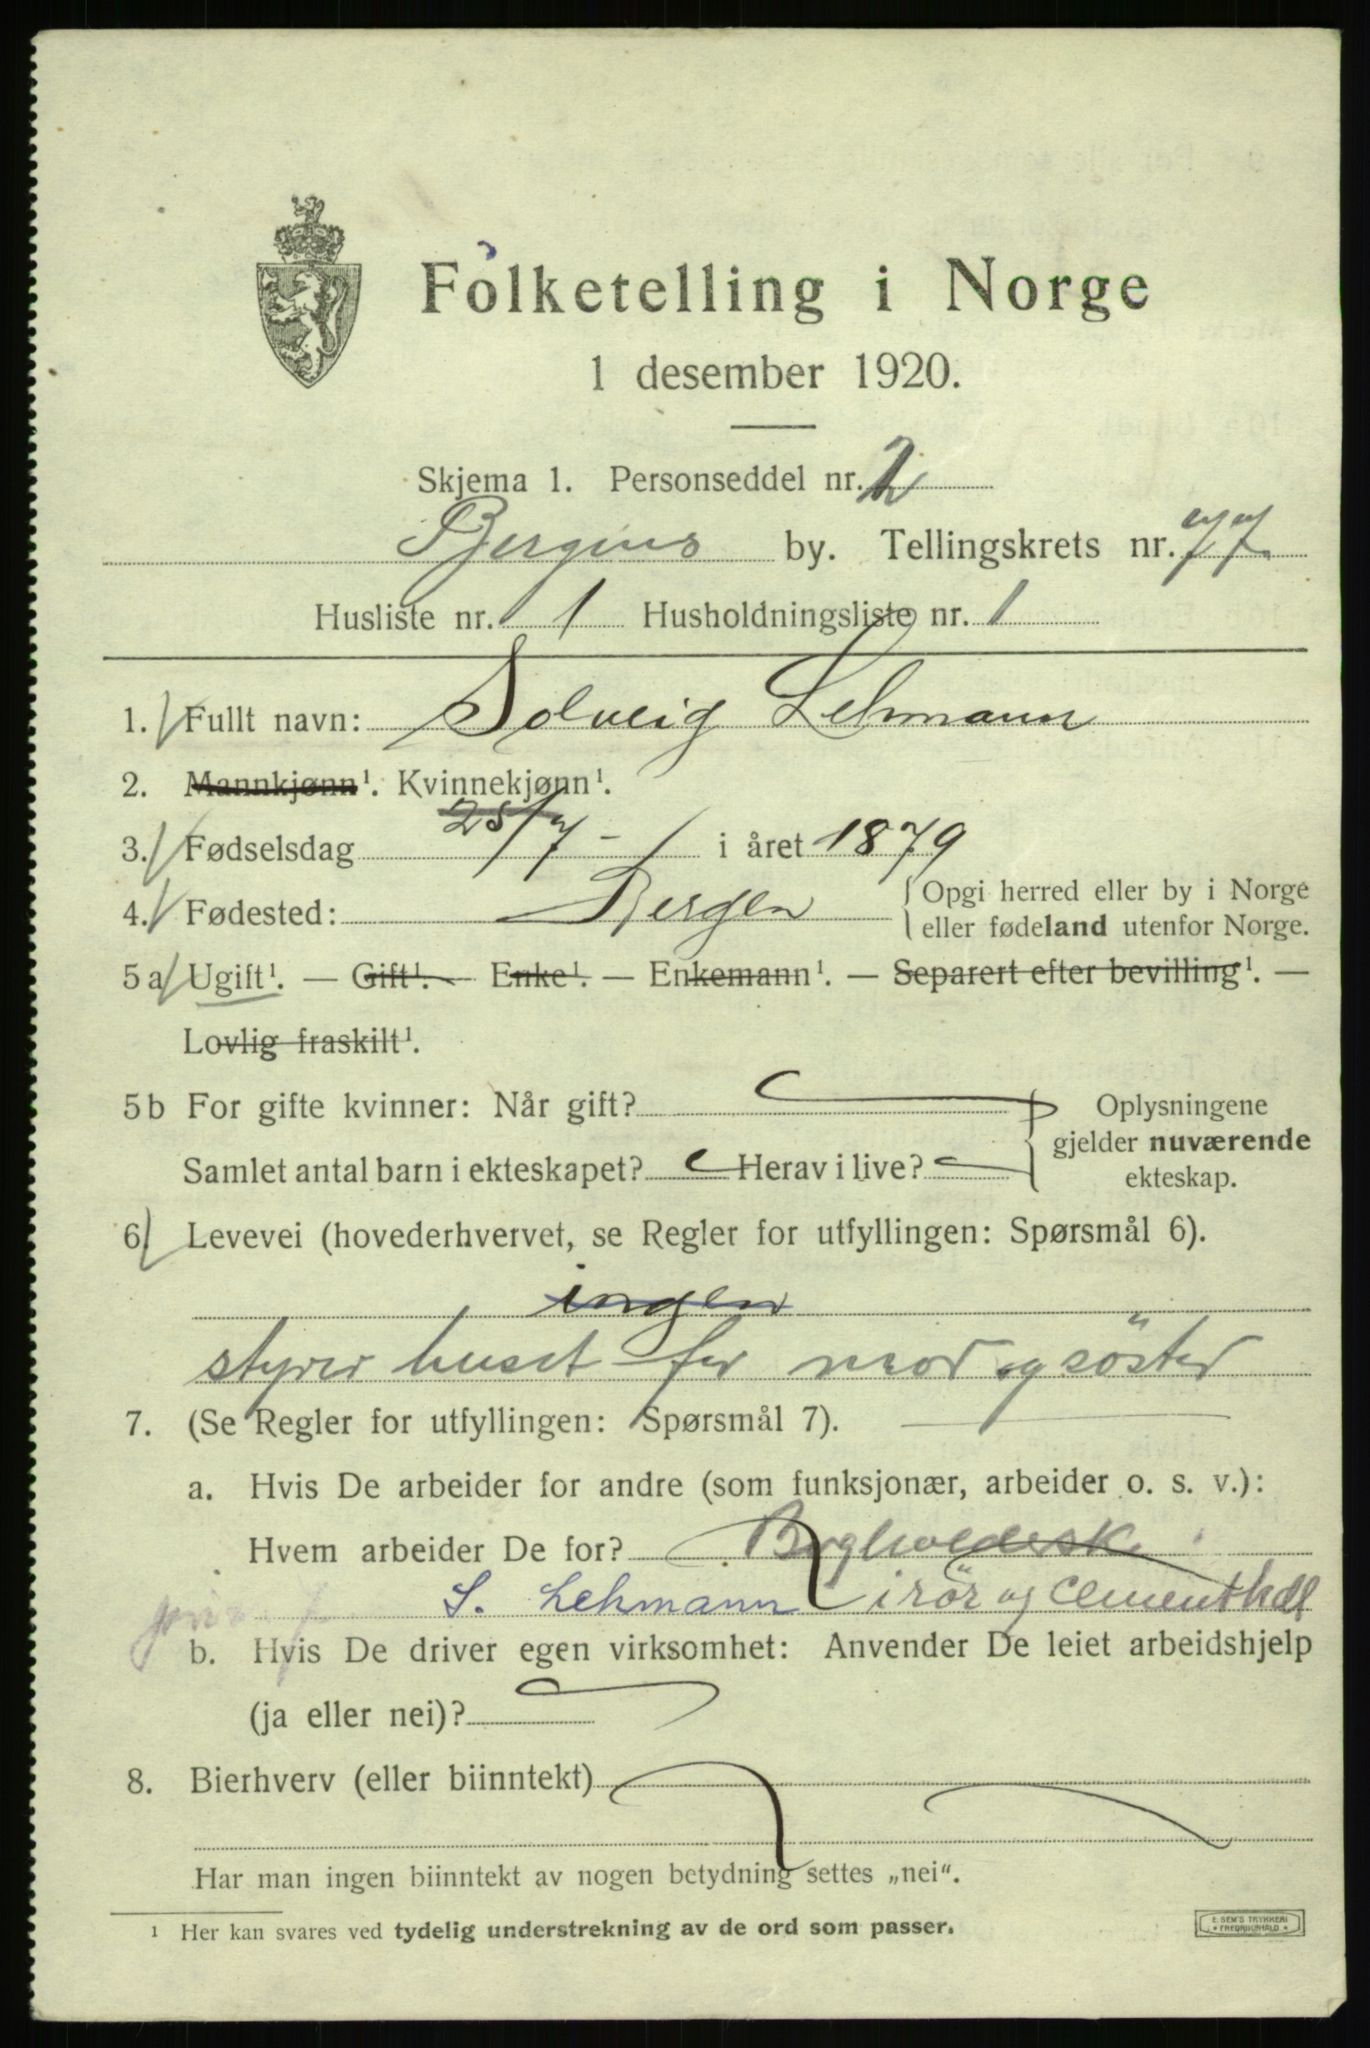 Folketelling i Norge
1 desember 1920.
Skjema 1. Personseddel nr. 2
Bergens by. Tellingskrets nr. 77
Husliste nr. 1 Husholdningsliste nr. 1
1. Fullt navn: Solveig Lehmann
2. Mannkjønn¹. Kvinnekjønn¹.
3. Fødselsdag 25/7 - i året 1879
4. Fødested: Bergen { Opgi herred eller by i Norge
eller fødeland utenfor Norge.
5 a Ugift¹. — Gift¹. — Enke¹. — Enkemann¹. — Separert efter bevilling¹. —
Lovlig fraskilt¹.
5 b For gifte kvinner: Når gift? Oplysningene
gjelder nuværende
Samlet antal barn i ekteskapet? Herav i live? ekteskap.
6. Levevei (hovederhvervet, se Regler for utfyllingen: Spørsmål 6).
ingen
styrer huset for mor og söster
7. (Se Regler for utfyllingen: Spørsmål 7).
a. Hvis De arbeider for andre (som funksjonær, arbeider o. s. v.):
Hvem arbeider De for? Bogholderske
S. Lehmann i rör og cementhdl
b. Hvis De driver egen virksomhet: Anvender De leiet arbeidshjelp
(ja eller nei)?
8. Bierhverv (eller biinntekt)
Har man ingen biinntekt av nogen betydning settes „nei“.
¹ Her kan svares ved tydelig understrekning av de ord som passer.
E. SEM'S TRYKKERI
FREDRIKSHALD